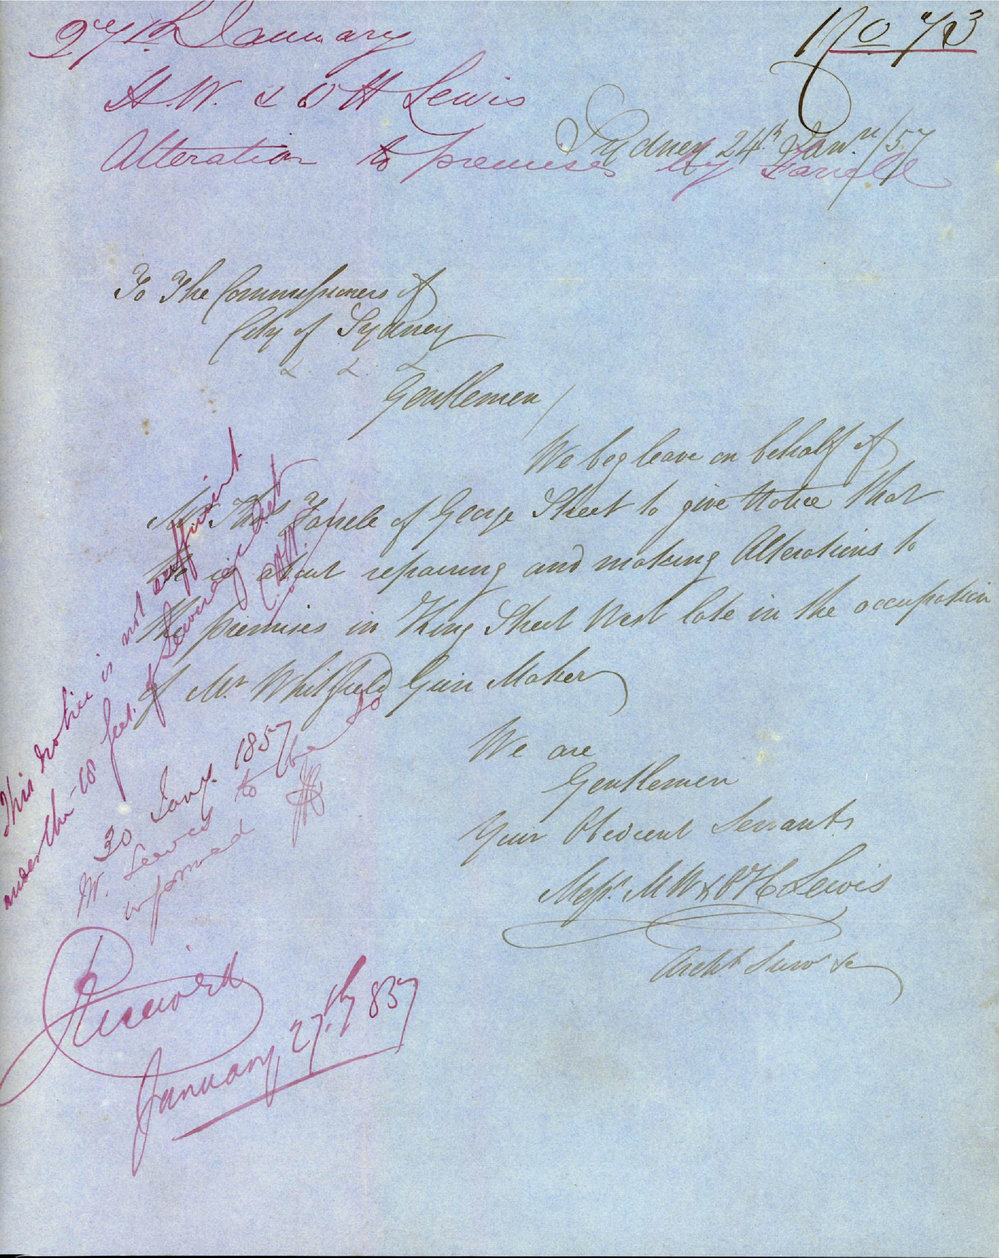 No 73
27th January
H.W. & O H Lewis
Alteration to premises by Farrele
Sydney 24th Janr /57
To The Commissioners of
City of Sydney
Gentlemen /
We beg leave on behalf of
Mr Thos Farrele of George Street to give Notice that
He is about repairing and making Alterations to
the premises in King Street West late in the occupation
of Mr Whitfield Gun Maker
We are
Gentlemen
Your Obedient Servants
Messrs M W & O H Lewis
Archts Survrs &c
This notice is not sufficient
under the 18 sect. of Sewerage Act
30 Jany. 1857
M. Lewis to be so
informed
Received
January 27th 1857